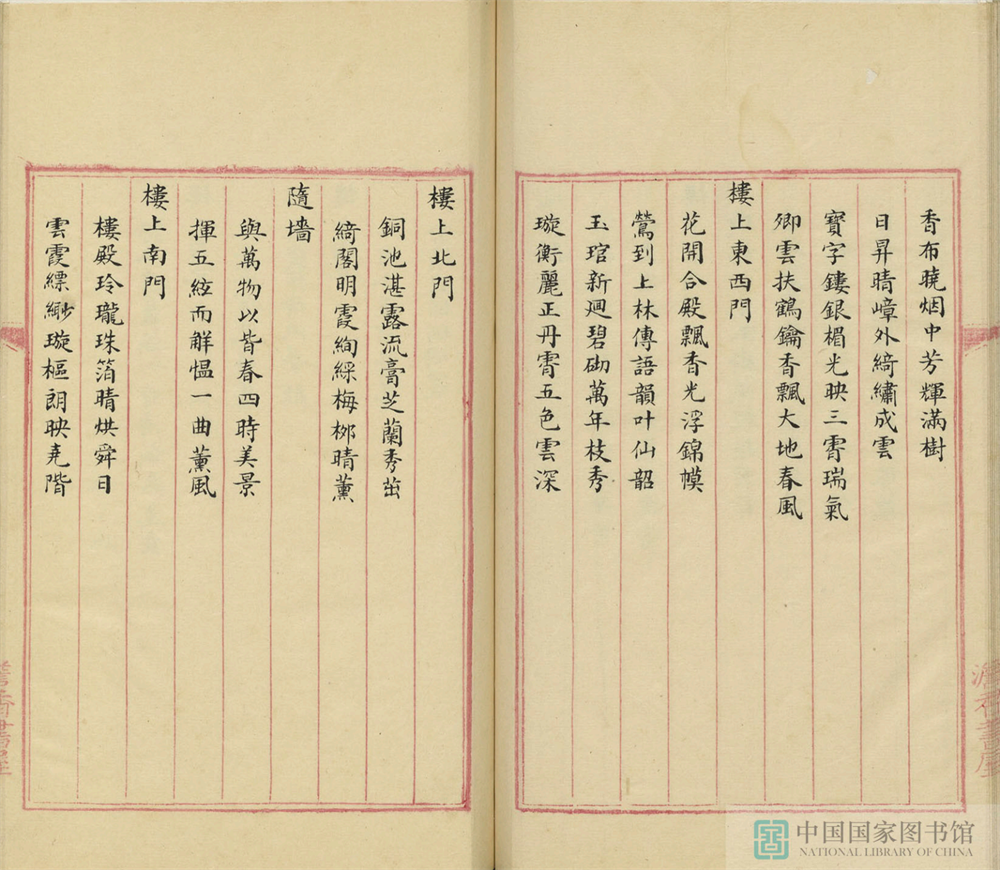 香布曉烟中芳輝滿樹
日昇晴嶂外綺繡成雲
寶字鏤銀楣光映三霄瑞氣
卿雲扶鶴鑰香飄大地春風
樓上東西門
花開合殿飄香光浮錦幙
鶯到上林傳語韻叶仙韶
玉琯新廻碧砌萬年枝秀
璇衡麗正丹霄五色雲深
樓上北門
銅池湛露流膏芝蘭秀茁
綺閣明霞絢綵梅栁晴薰
隨墻
與萬物以皆春四時美景
揮五絃而觧愠一曲薰風
樓上南門
樓殿玲瓏珠箔晴烘舜日
雲霞縹緲璇樞朗映堯階
澹香書屋
澹香書屋
中国国家图书馆
NATIONAL LIBRARY OF CHINA